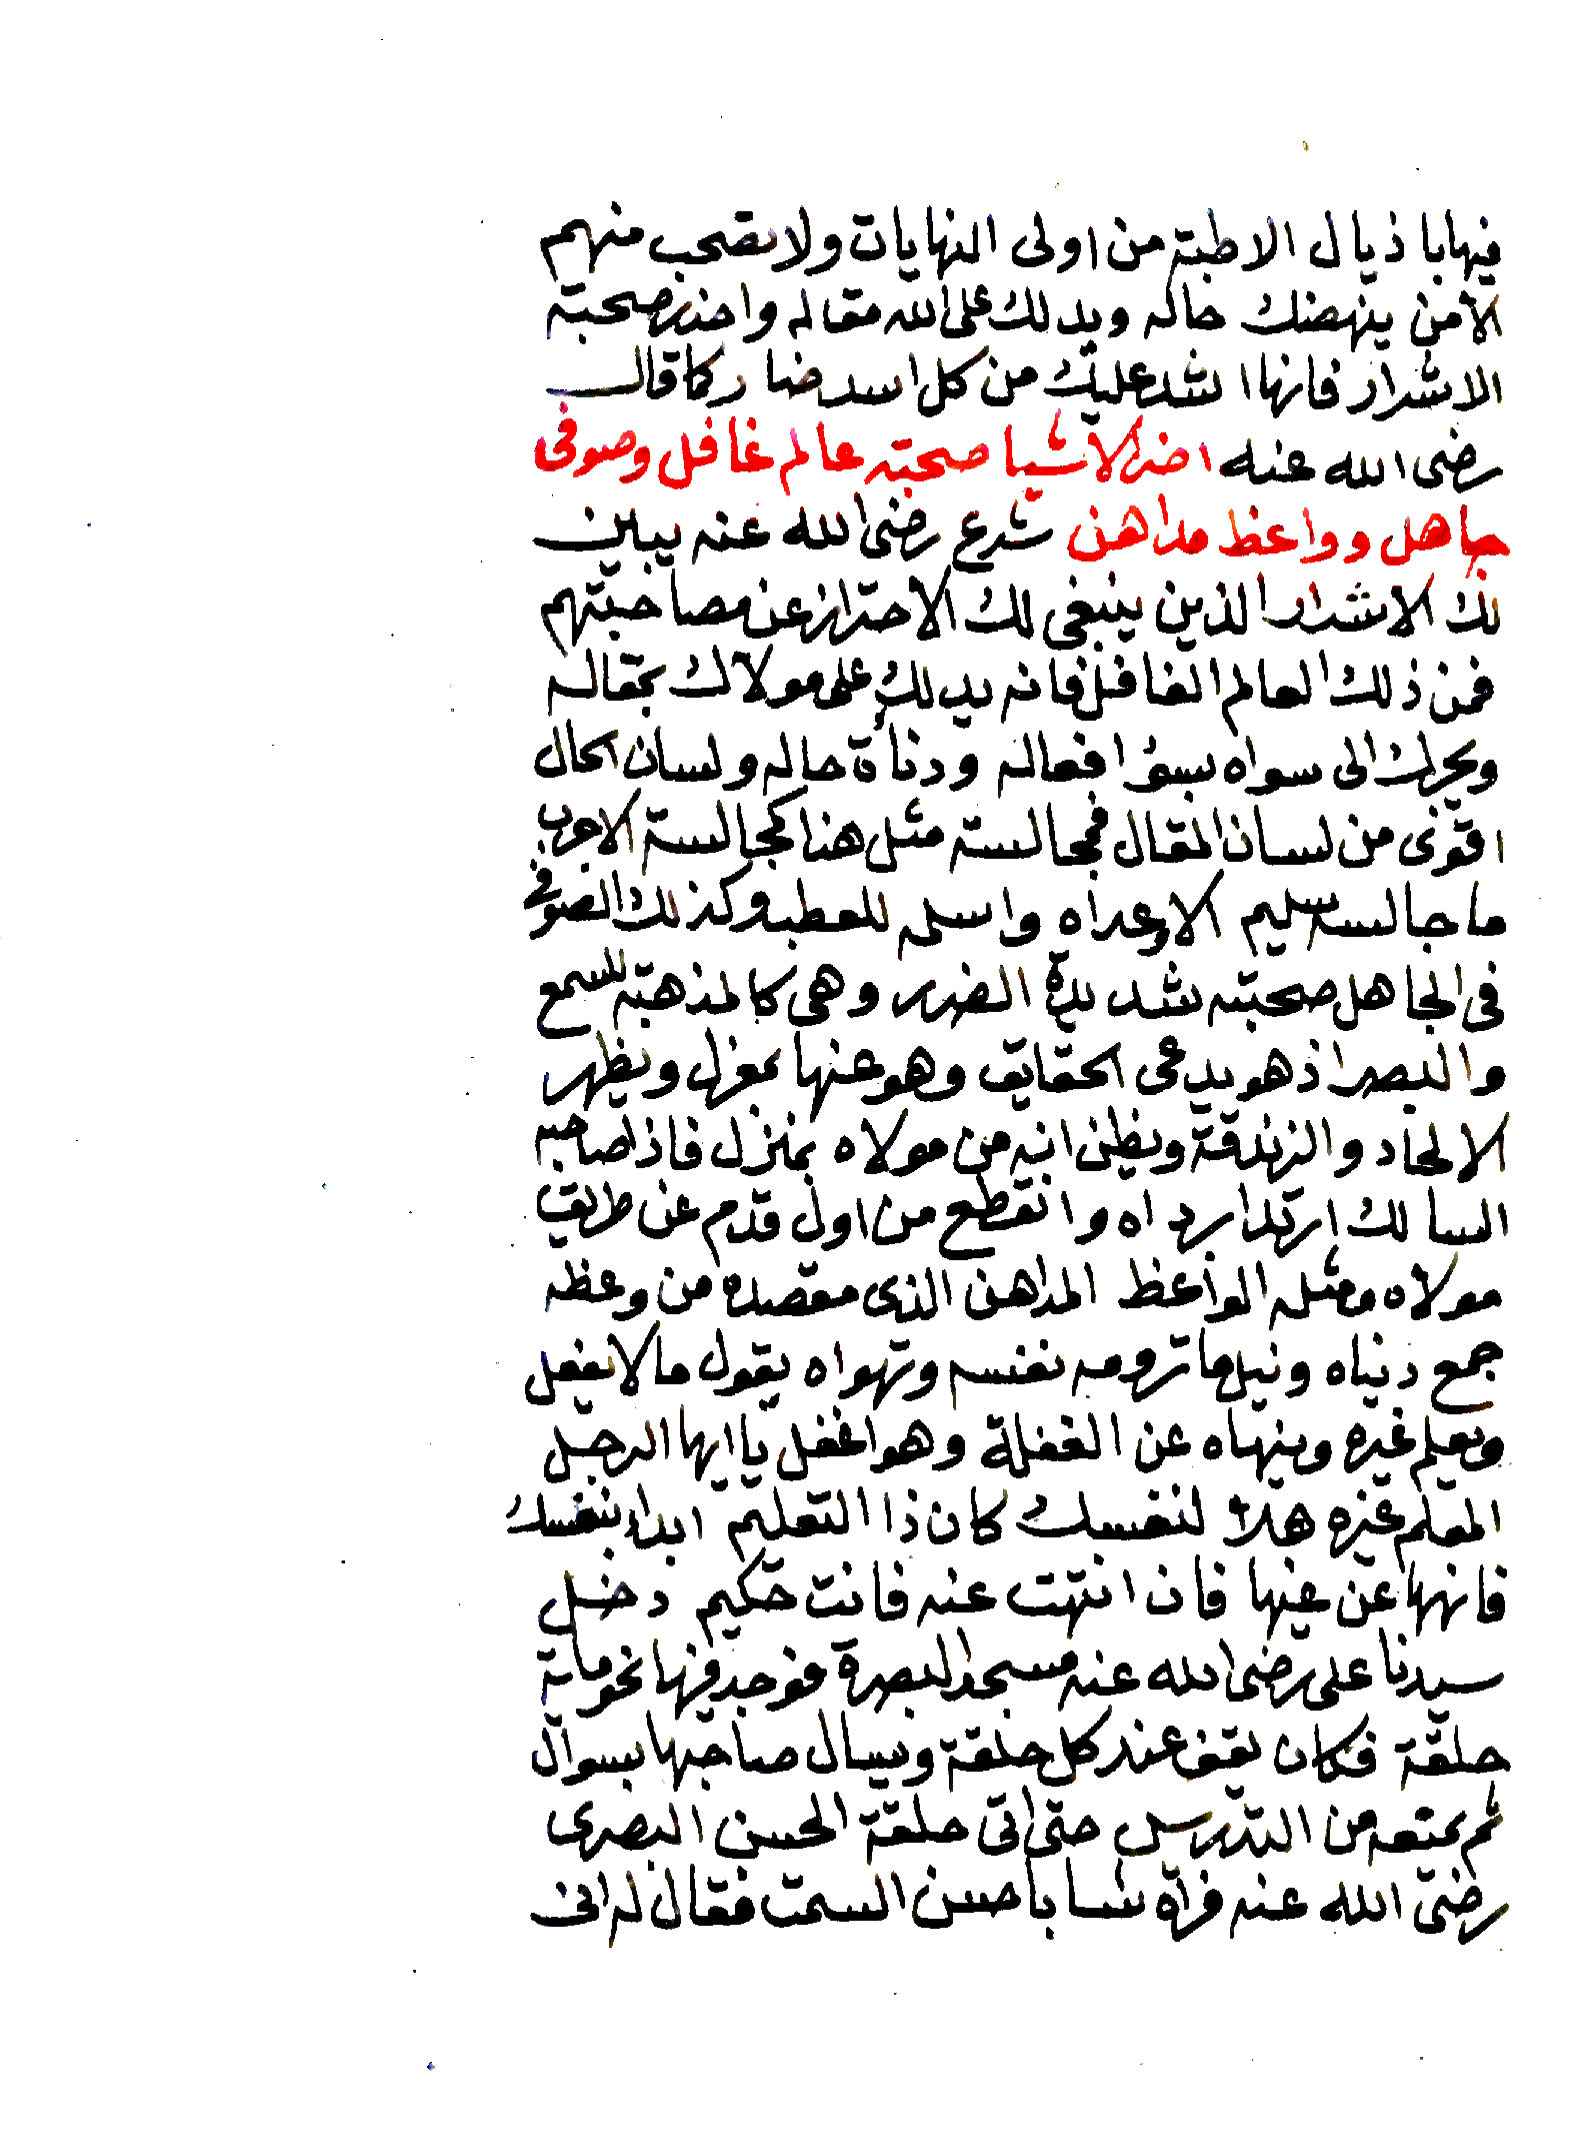 فيها باذيال الاطبة من اولى النهايات ولا تصحب منهم
الا من ينهضك حاله ويدلك على الله مقاله واحذر صحبة
الاشرار فانها اشد عليك من كل اسد ضار كما قال
رضى الله عنه اضر الاشيا صحبة عالم غافل وصوفى
جاهل وواعظ مداهن شرع رضى الله عنه يبين
لك الاشرار الذين ينبغى لك الاحتراز عن مصاحبتهم
فمن ذلك العالم الغافل فانه يدلك على مولاك بمقاله
ويجرك الى سواه بسؤ افعاله ودناة حاله ولسان الحال
اقوى من لسان المقال فمجالسة مثل هذا كمجالسة الاجرب
ما جالسه سليم الا وعداه واسلمه للعطب وكذلك الصوفى
فى الجاهل صحبته شديدة الضرر وهى كالمذهبة للسمع
والبصر اذ هو يدعى الحقايق وهو عنها بمعزل ويظهر
الالحاد والزندقة ويظن انه من مولاه بمنزل فاذا صاحبه
السالك ارتدا برداه وانقطع من اول قدم عن طريق
مولاه ومثله الواعظ المداهن الذى مقصده من وعظه
جمع دنياه ونيل ما ترومه نفسه وتهواه يقول ما لا يفعل
ويعلم غيره وينهاه عن الغفلة وهو اغفل يا ايها الرجل
المعلم غيره هلا لنفسك كان ذا التعليم ابداء بنفسك
فانهها عن غيها فان انتهت عنه فانت حكيم دخل
سيدنا على رضى الله عنه مسجد البصرة فوجد فيها نحو ماية
حلقة فكان يقف عند كل حلقة ويسال صاحبها بسوال
ثم يمنعه من التدريس حتى اتى حلقة الحسن البصرى
رضى الله عنه فراه شابا حسن السمت فقال له انى